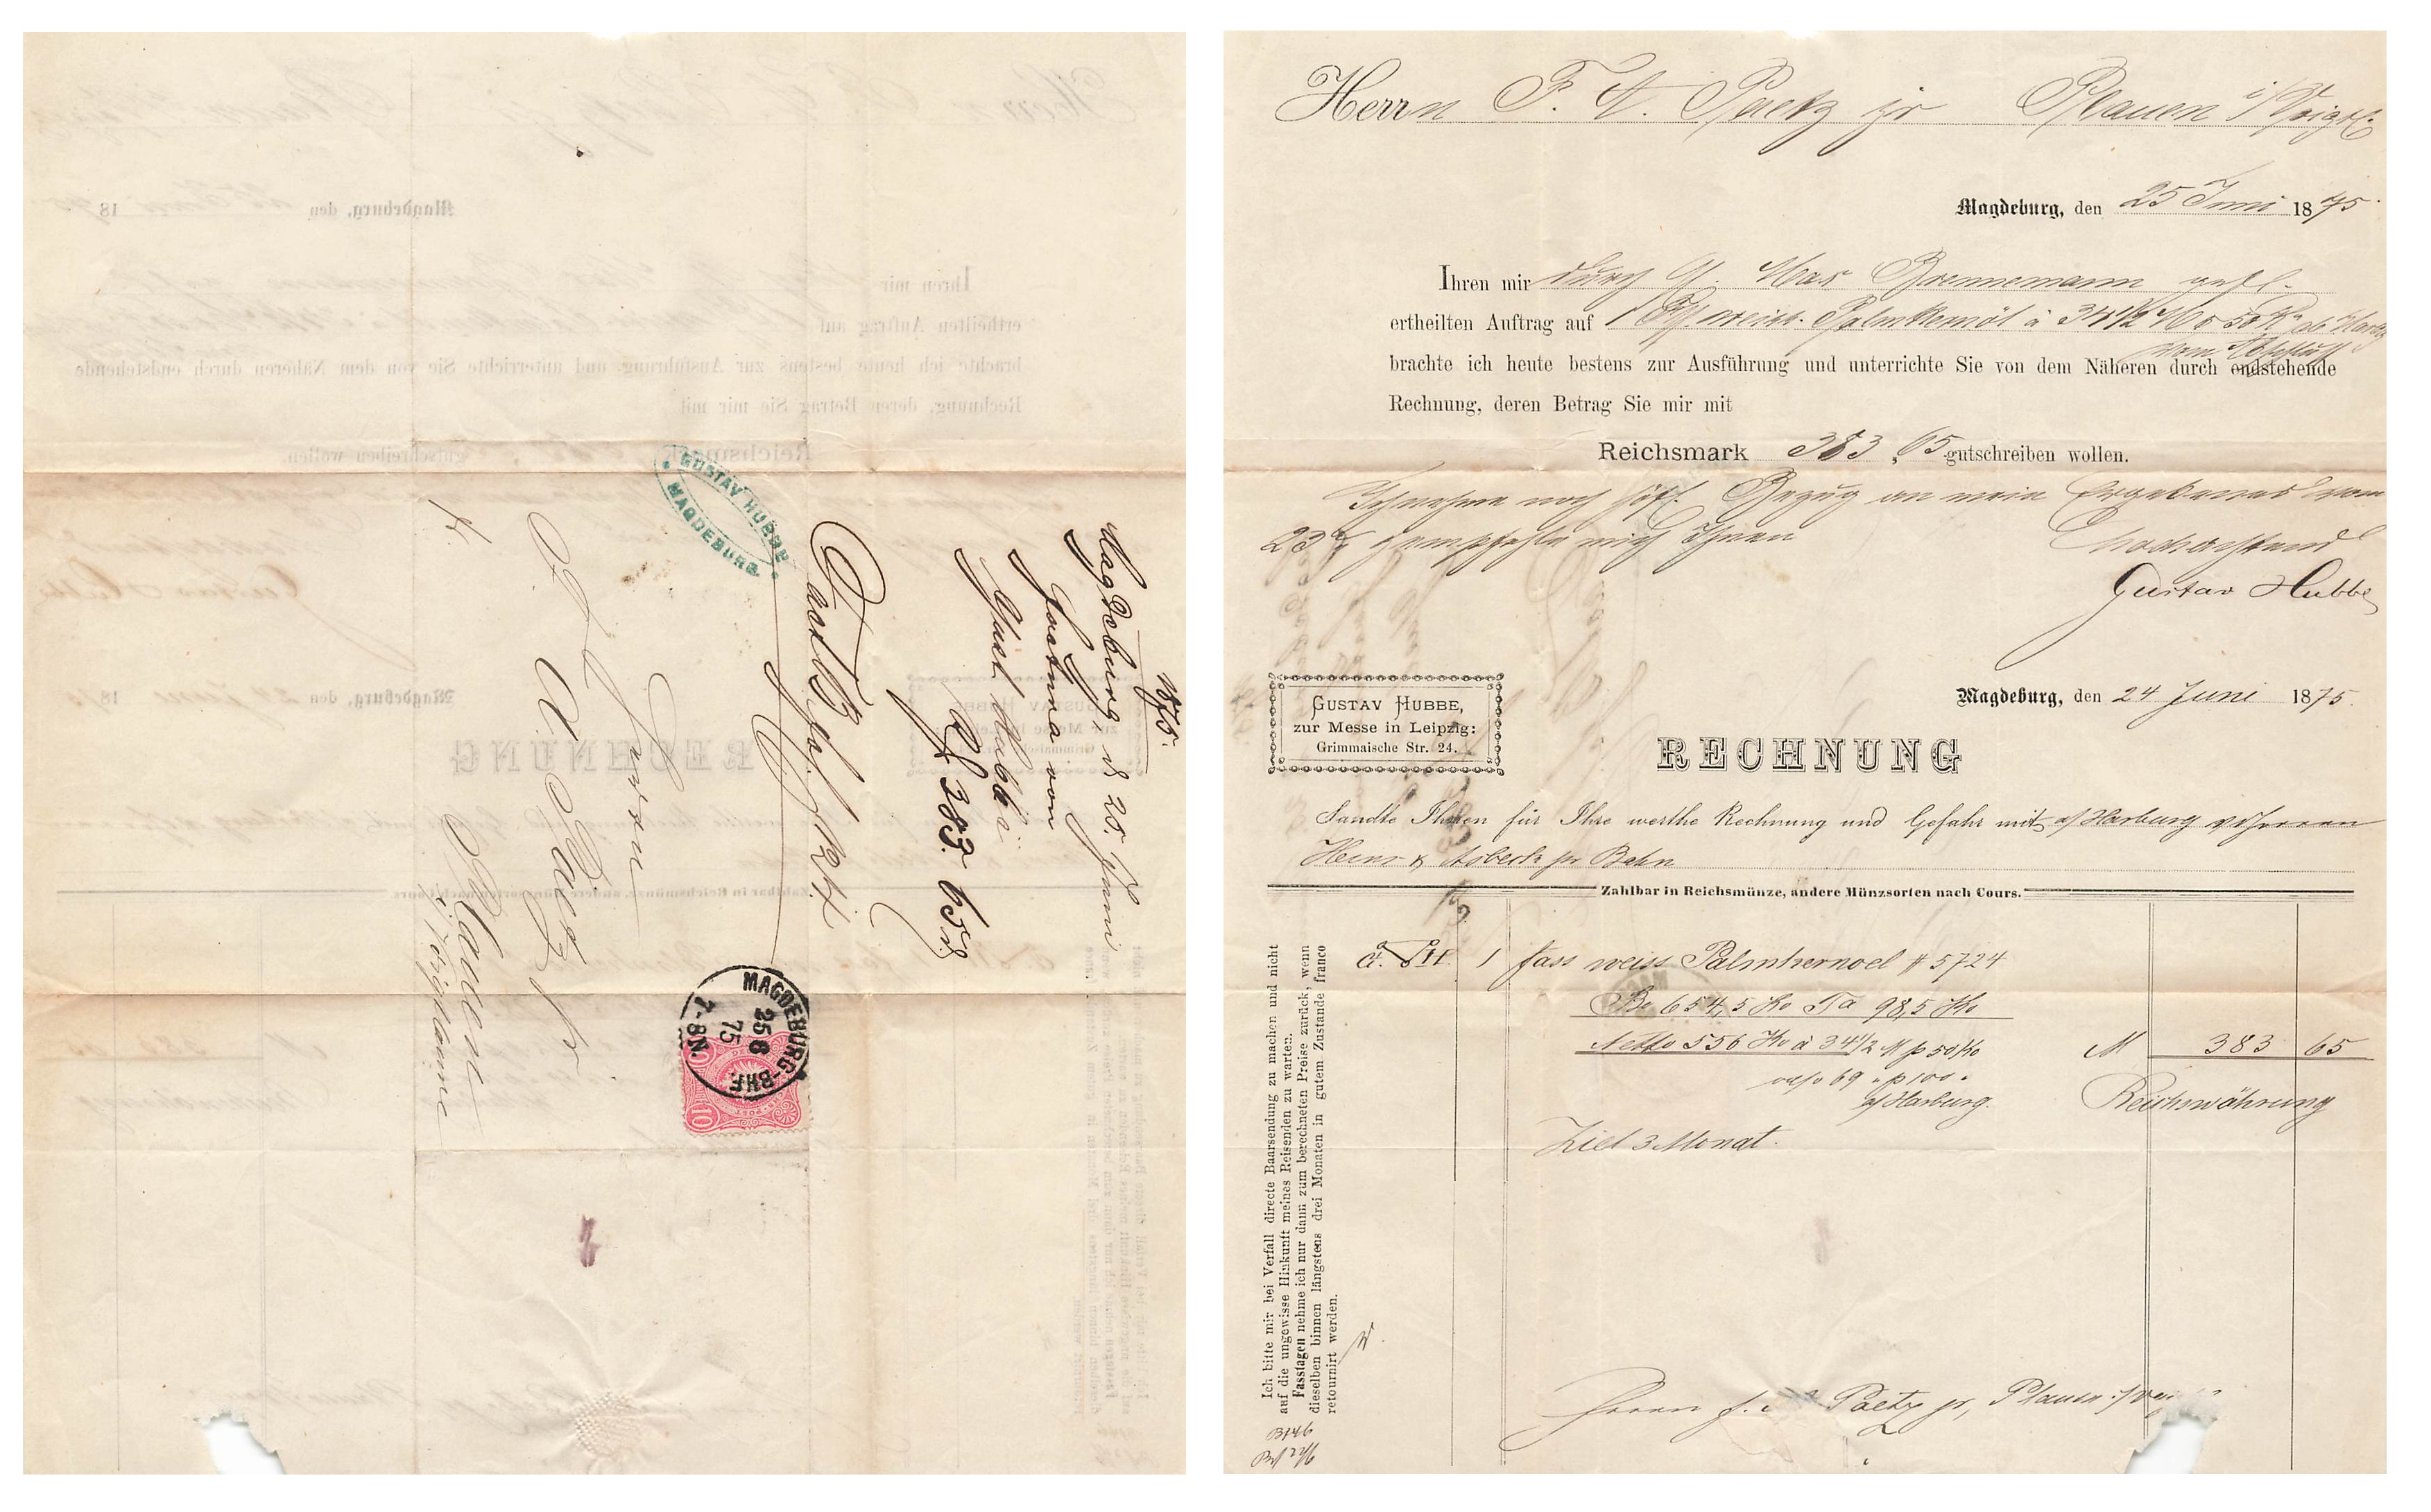 1875.
Magdeburg, d 25. Juni
Factura von
Gust. Hubbe.
RM 383. 65 d
GUSTAV HUBBE
MAGDEBURG.
Herrn
F. A. Paetz jr
Plauen
i/Voigtl.
MAGDEBURG-BHF.
25 6
75
7-8N.
10
Herrn F. A. Paetz jr Plauen i/Voigtl.
Magdeburg, den 25 Juni 1875.
Ihren mir durch H. Max Brennemann gefl.
ertheilten Auftrag auf 1 weiss. Palmkernöl à 34 1/2 M 50 K° ab Harbg
vom Abschluss
brachte ich heute bestens zur Ausführung und unterrichte Sie von dem Näheren durch endstehende
Rechnung, deren Betrag Sie mir mit
Reichsmark 383,65 gutschreiben wollen.
Ich nehme noch höfl. Bezug an mein Ergebenes vom
23 empfehle mich Ihnen
Hochachtend
Gustav Hubbe
GUSTAV HUBBE,
zur Messe in Leipzig:
Grimmaische Str. 24.
Magdeburg, den 24 Juni 1875.
RECHNUNG
Sandte Ihnen für Ihre werthe Rechnung und Gefahr mit a/Harburg d/Herren
Heins & Asbeck pr Bahn
Zahlbar in Reichsmünze, andere Münzsorten nach Cours.
G. H. 1 fass weiss Palmkernoel # 5724
Bo 654,5 Ko Ta 98,5 Ko
Netto 556 Ko à 34 1/2 M p 50 Ko M 383 65
69 p 100
a/Harburg. Reichswährung
Ziel 3 Monat.
Ich bitte mir bei Verfall directe Baarsendung zu machen und nicht
auf die ungewisse Hinkunft meines Reisenden zu warten.
Fasstagen nehme ich nur dann zum berechneten Preise zurück, wenn
dieselben binnen längstens drei Monaten in gutem Zustande franco
retournirt werden.
Herrn F. A. Paetz jr, Plauen i/Voi